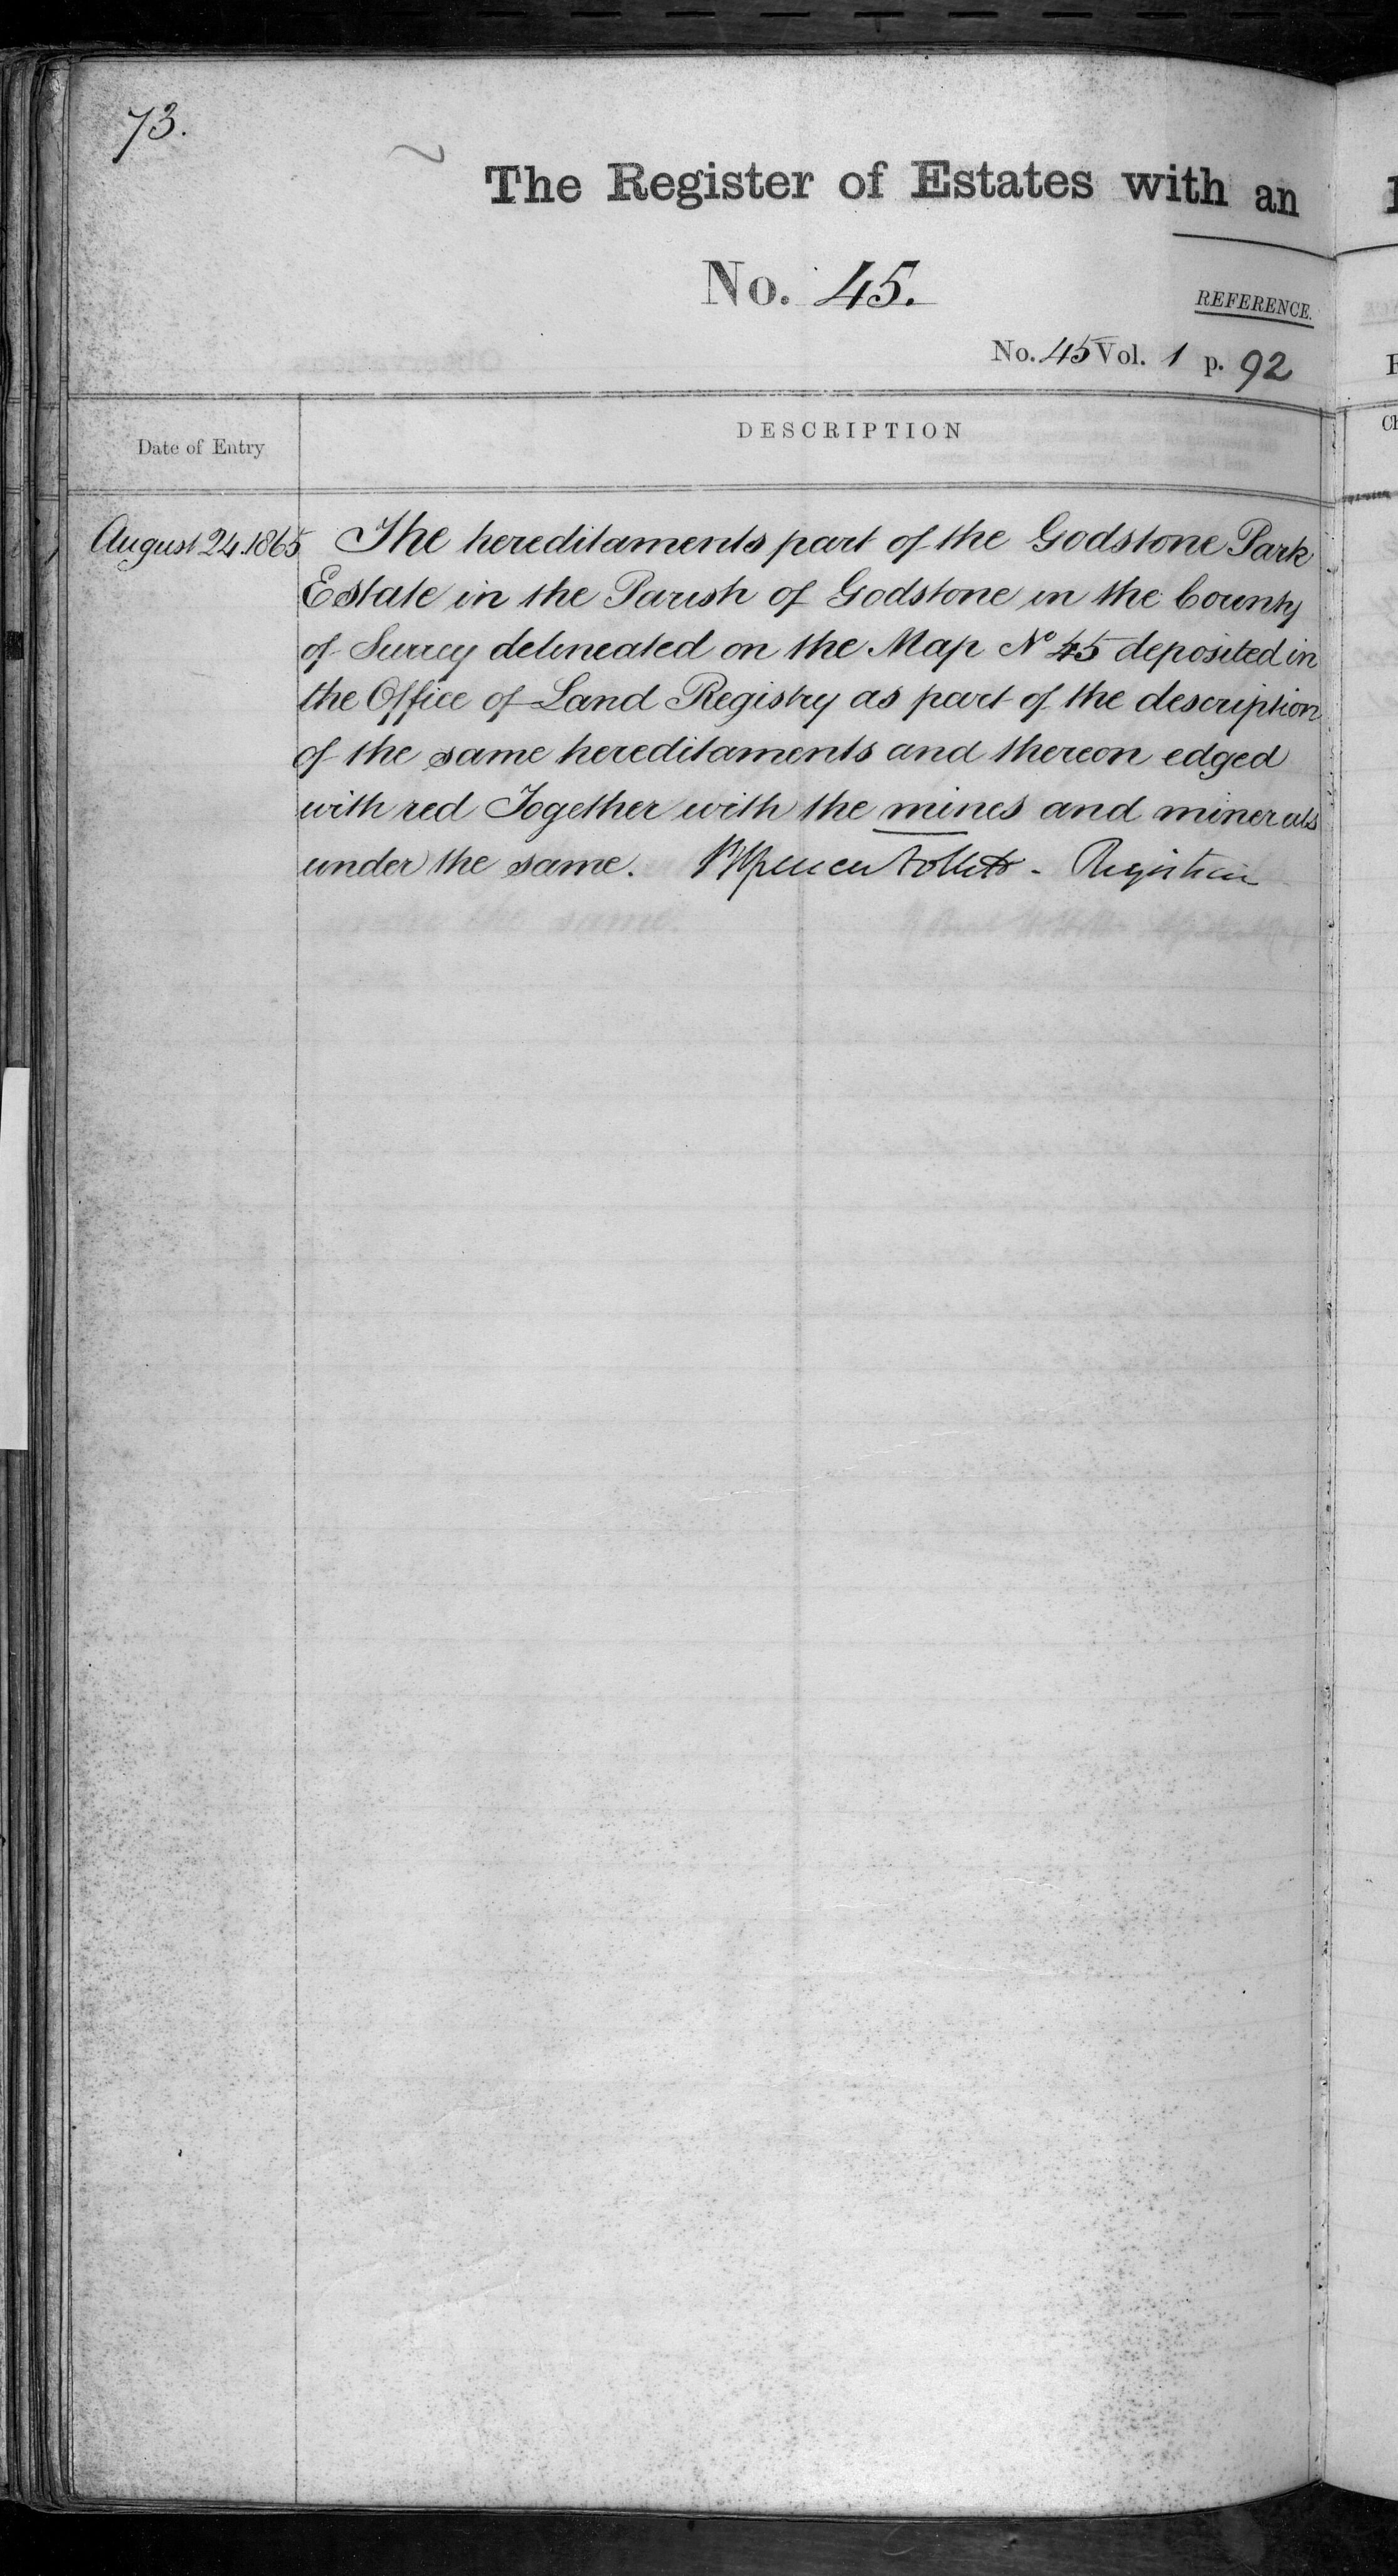 73.
The Register of Estates with an
No. 45.
REFERENCE.
No. 45 Vol. 1 p. 92
Date of Entry
DESCRIPTION
August 24. 1865
The hereditaments part of the Godstone Park
Estate in the Parish of Godstone in the County
of Surrey delineated on the Map No 45 deposited in
the Office of Land Registry as part of the description
of the same hereditaments and thereon edged
with red Together with the mines and minerals
under the same. Spencer Follett - Registrar